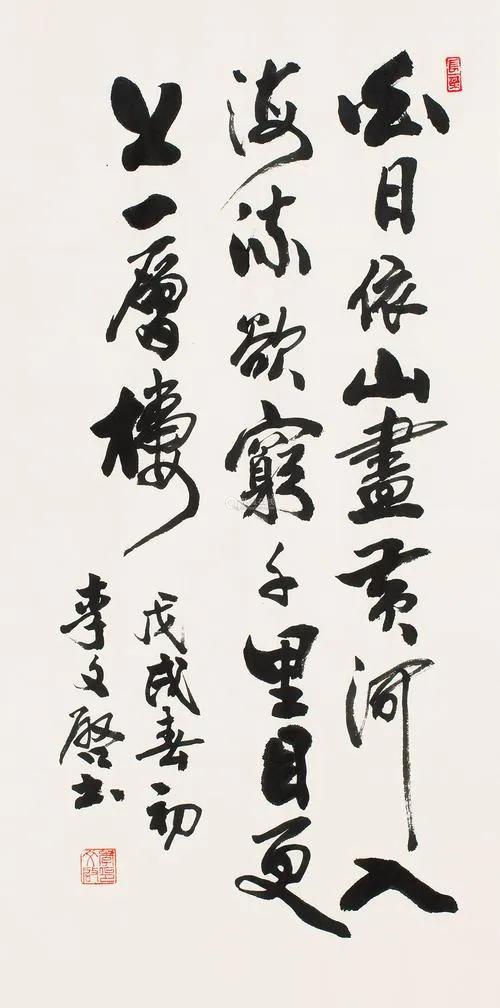 白日依山盡黄河入
海流欲窮千里目更
上一層樓
戊戌春初
李文啓书